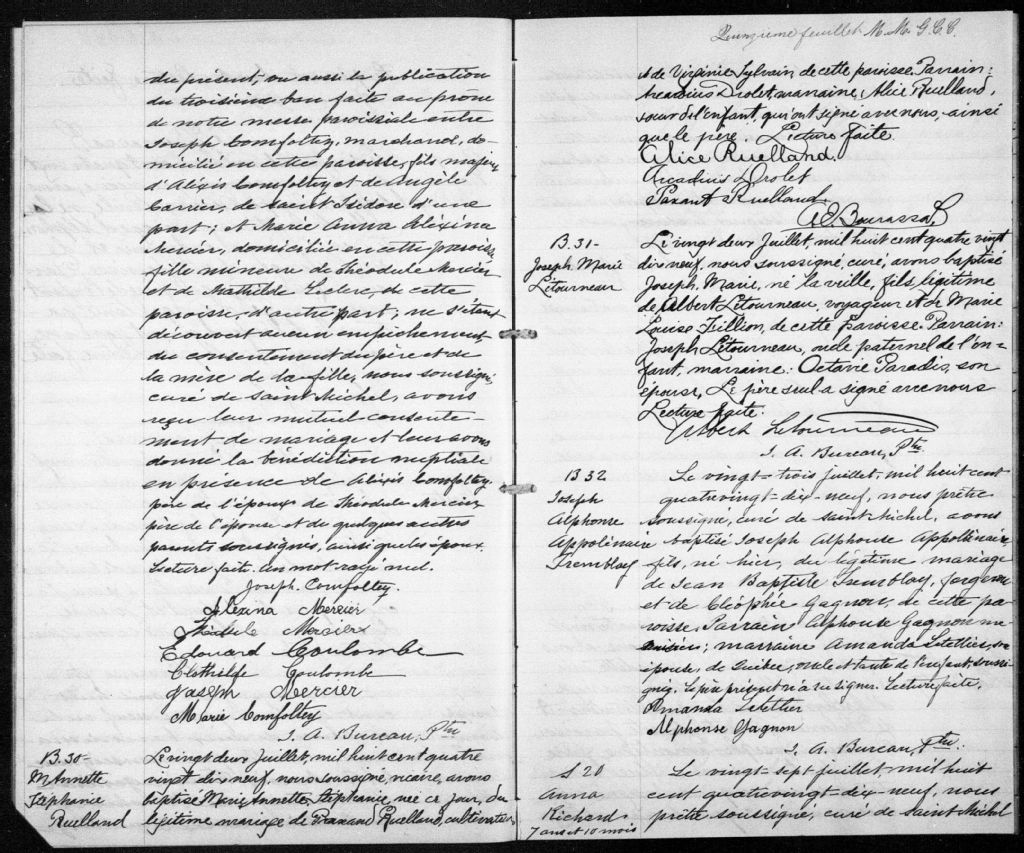 du présent, vu aussi la publication
du troisième ban faite au prône
de notre messe paroissial entre
Joseph Comfoltey, marchand, do-
micilié en cette paroisse, fils majeur
d'Aléxis Comfoltey et de Angèle
Carrier, de Saint Isidore d'une
part; et Marie Anna Aléxina
Mercier, domiciliée en cette paroisse
fille mineure de Théodule Mercier
et de Mathilde Leclerc, de cette
paroisse, d'autre part; ne s'étant
découvert aucun empêchement
du consentement du père et de
la mère de la fille, nous soussigné,
curé de Saint Michel, avons
reçu leur mutuel consente-
ment de mariage et leur avons
donné la bénédiction nuptiale
en présence de Aléxis Comfoltey
père de l'époux de Théodule Mercier,
père de l'épouse et de quelques autres
parents soussignés, ainsi que les époux.
Lecture faite. Un mot rayé nul.
Joseph. Comfoltey.
Alexina Mercier
Théodule Mercier
Edouard Coulombe
Clothilde Coulombe
Joseph Mercier
Marie Comfoltey
J. A. Bureau, Ptre
B. 30-
M Annette
Stéphanie
Ruelland
Le vingt deux Juillet, mil huit cent quatre
vingt dix neuf, nous soussigné, vicaire, avons
baptisé Marie Annette, Stéphanie, née ce jour, du
légitime mariage de Ruelland, cultivateur
Quinzième feuillet. M. M. G. C. C.
et de Virginie Sylvain de cette paroisse. Parrain:
Arcadius Drolet, marraine, Alice Ruelland,
soeur de l'enfant, qui ont signé avec nous, ainsi
que le père. Lecture faite.
Alice Ruelland.
Arcadius Drolet
Ruelland
Bourassa
B. 31-
Joseph Marie
Létourneau
Le vingt deux Juillet, mil huit cent quatre vingt
dix neuf, nous soussigné, curé, avons baptisé
Joseph, Marie, né la veille, fils légitime
de Albert Létourneau, voyageur et de Marie
Louise Fillion, de cette Paroisse. Parrain:
Joseph Létourneau, oncle paternel de l'en-
fant, marraine: Octavie Paradis, son
épouse, Le père seul a signé avec nous
Lecture faite.
Albert Letourneau
J. A. Bureau, Ptre
B 32
Joseph
Alphonse
Appolinaire
Tremblay
Le vingt-trois juillet, mil huit cent
quatrevingt-dix-neuf, nous prêtre
soussigné, curé de Saint Michel, avons
baptisé Joseph Alphonse Appollinaire
fils, né hier, du légitime mariage
de Jean Baptiste Tremblay, forgeron
et de Cléophée Gagnon, de cette pa-
roisse. Parrain Alphonse Gagnon
; marraine Amanda Letellier, son
épouse, de Québec, oncle et tante de l'enfant, soussi-
gnés. Le père présent n'a su signer. Lecture faite,
Amanda Letellier
Alphonse Gagnon
J. A. Bureau, Ptre.
S 20
Anna
Richard
7 ans et 10 mois
Le vingt-sept juillet, mil huit
cent quatrevingt-dix-neuf, nous
prêtre soussigné, curé de Saint Michel